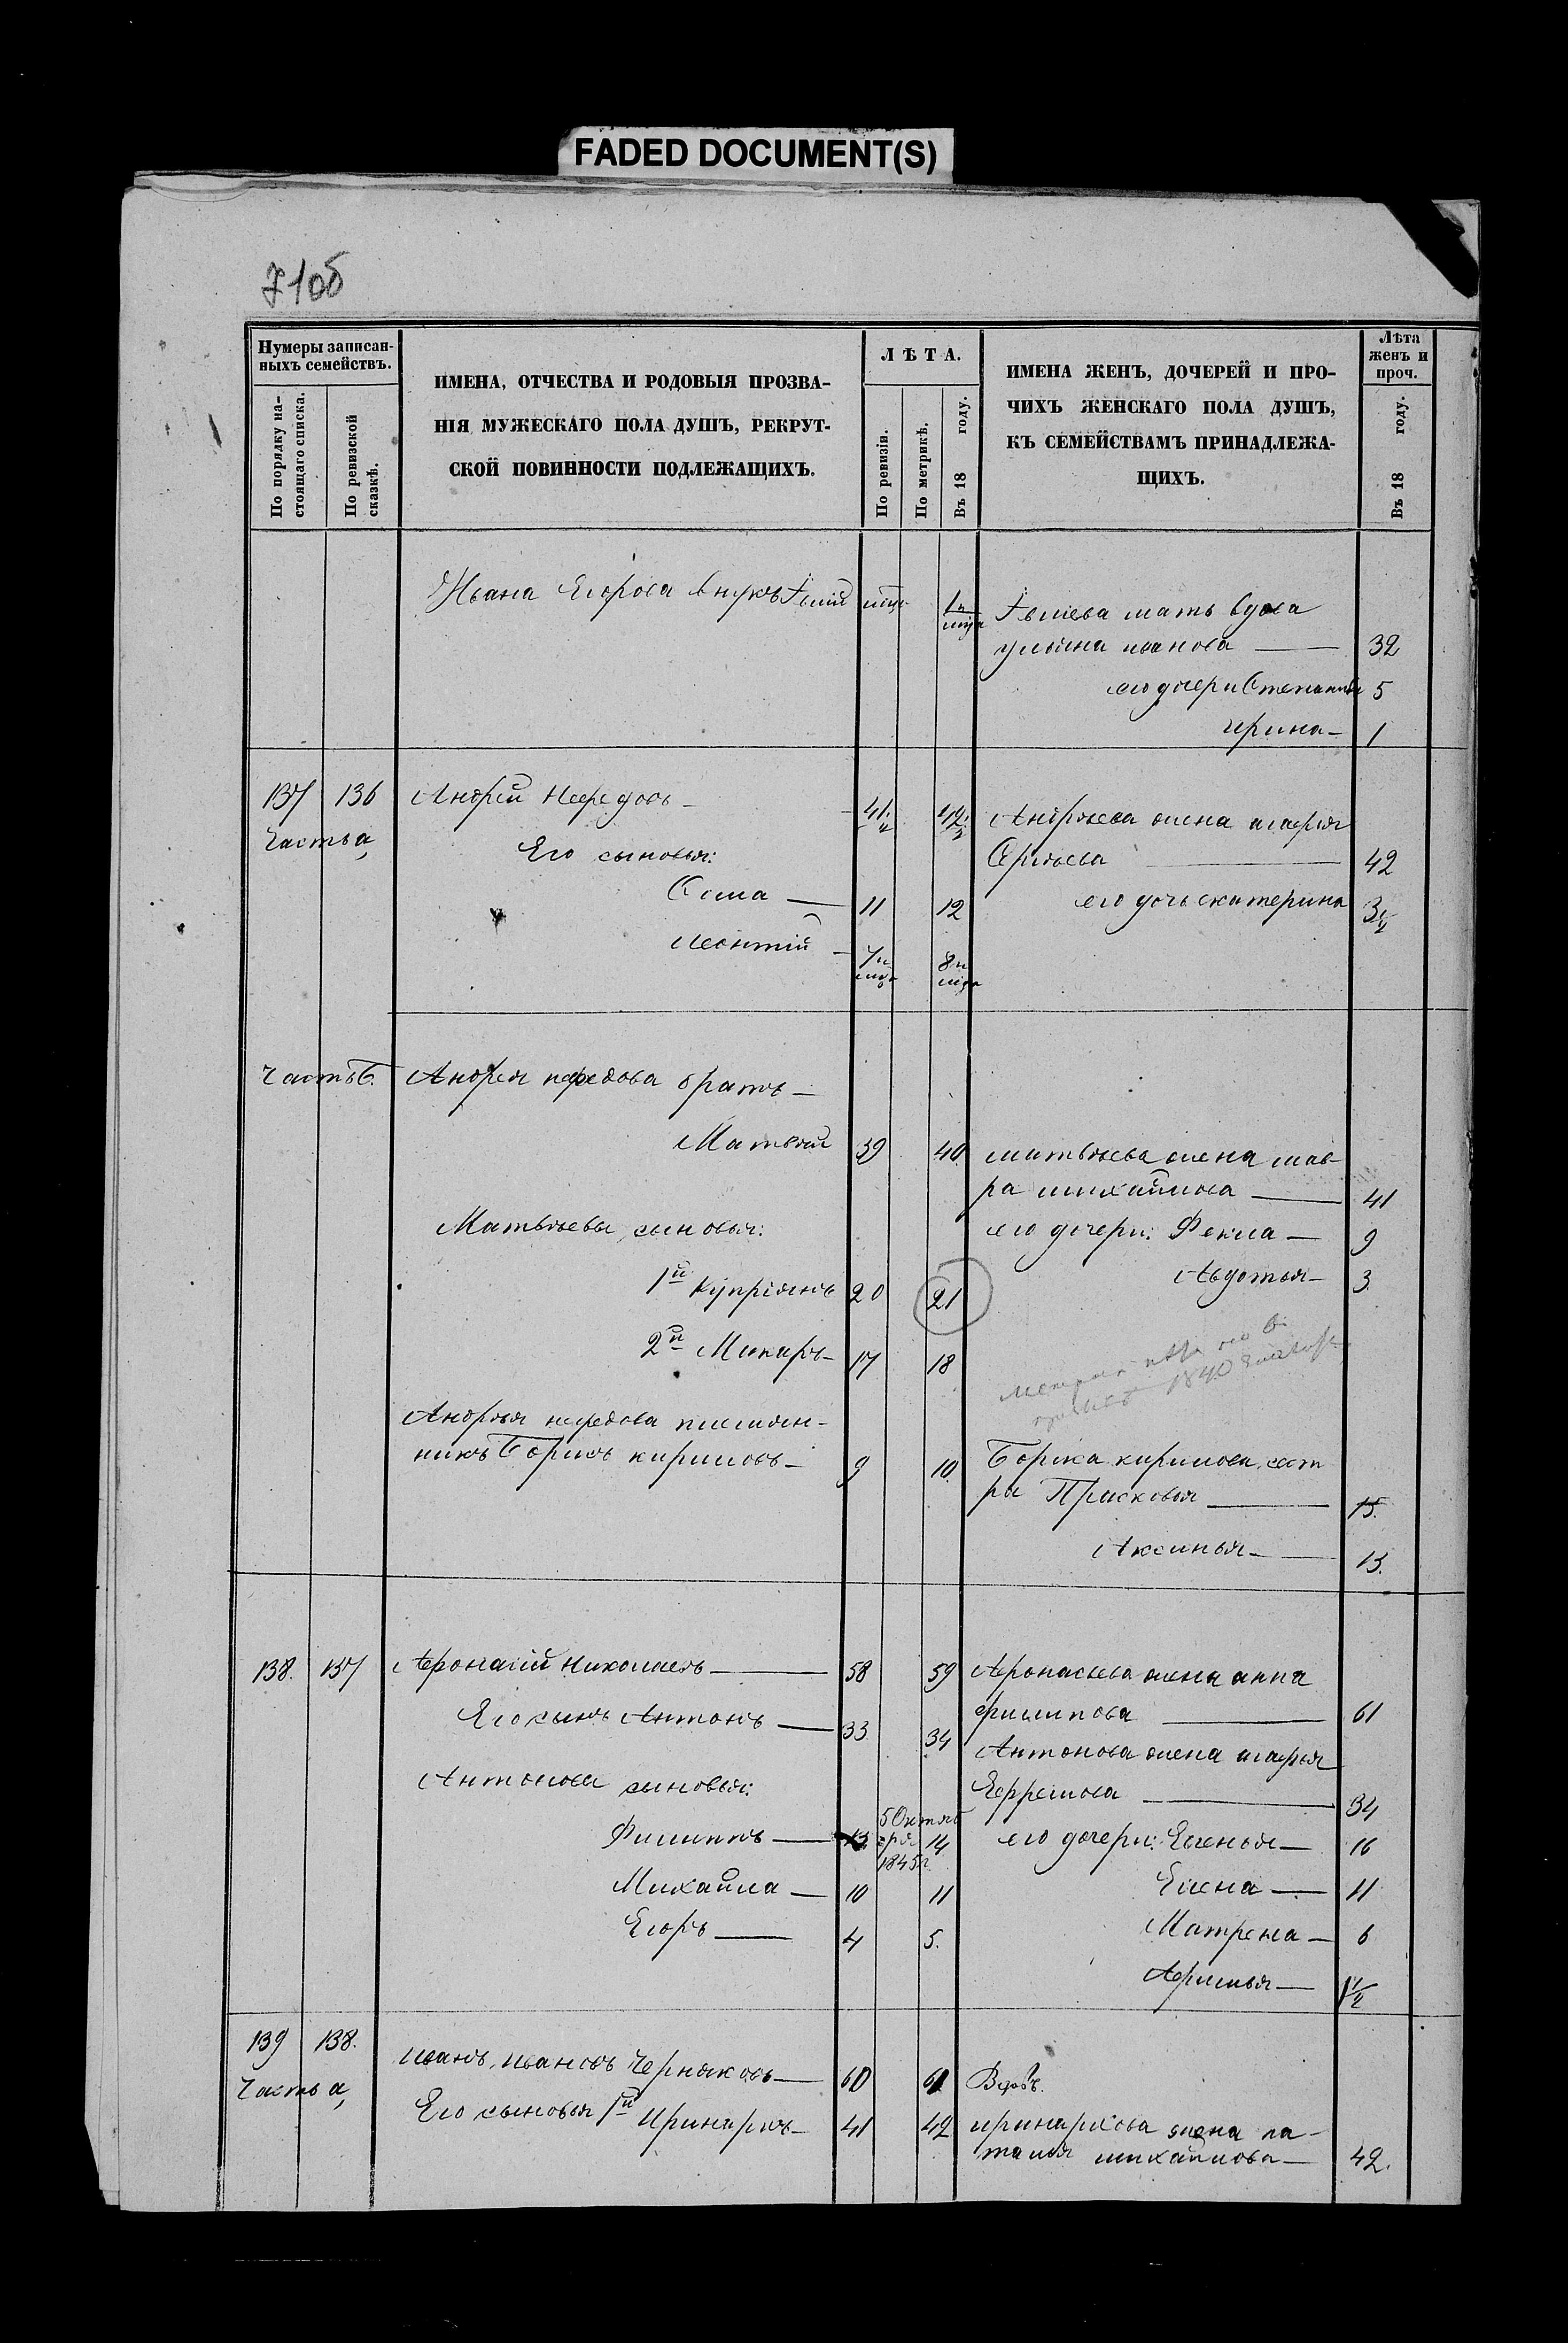 FADED DOCUMENT(S)
71об
Нумеры записан-
ныхъ семействъ.
По порядку на-
стоящаго списка.
По ревизской
сказкѣ.
ИМЕНА, ОТЧЕСТВА И РОДОВЫЯ ПРОЗВА-
НІЯ МУЖЕСКАГО ПОЛА ДУШЪ, РЕКРУТ-
СКОЙ ПОВИННОСТИ ПОДЛЕЖАЩИХЪ.
ЛѢТА.
По ревизіи.
По метрикѣ.
Въ 18 году.
ИМЕНА ЖЕНЪ, ДОЧЕРЕЙ И ПРО-
ЧИХЪ ЖЕНСКАГО ПОЛА ДУШЪ,
КЪ СЕМЕЙСТВАМЪ ПРИНАДЛЕЖА-
ЩИХЪ.
Лѣта
женъ и
проч.
Въ 18 году.
Ивана Егорова внукъ
мать вдова
ульяна иванова — 32
его дочери Степанида 5
ирина — 1
137 136 Андрей Нефедовъ — 41 42 Андреева жена марья
Часть а,
Его сыновья: Сергѣева — 42
Осипа — 11 12 его дочь екатерина 3
Леонтій — 7 8
Часть б. Андрея нефедова братъ —
Матвей 39 40 матвѣева жена мав-
ра михайлова — 41
Матвѣевы сыновья: его дочери: Фекла — 9
1й Купріянъ 20 21 Авдотья — 3.
2й Макаръ — 17 18
1840
Андрея нефедова племян-
никъ Борисъ кириловъ — 9 10. Бориса кирилова сест
ры Прасковья — 15.
Аксинья — 13.
138. 137 Афонасій Николаевъ — 58 59 Афонасьева жена анна
филипова — 61
Его сынъ Антонъ — 33 34 Антонова жена марья
Антоновы сыновья: Ефремова — 34
Филиппъ — 13 5 Октяб
ря
1845г. 14 его дочери: Евгенья — 16
Михайла — 10 11 Елена — 11
Егоръ — 4 5. Матрена — 6
Афимья — 1½
139 138. Иванъ Ивановъ Черняковъ — 60 61 Вдовъ.
Часть а,
Его сыновья 1й Иринархъ — 41 42 иринархова жена на-
талья михайлова — 42.